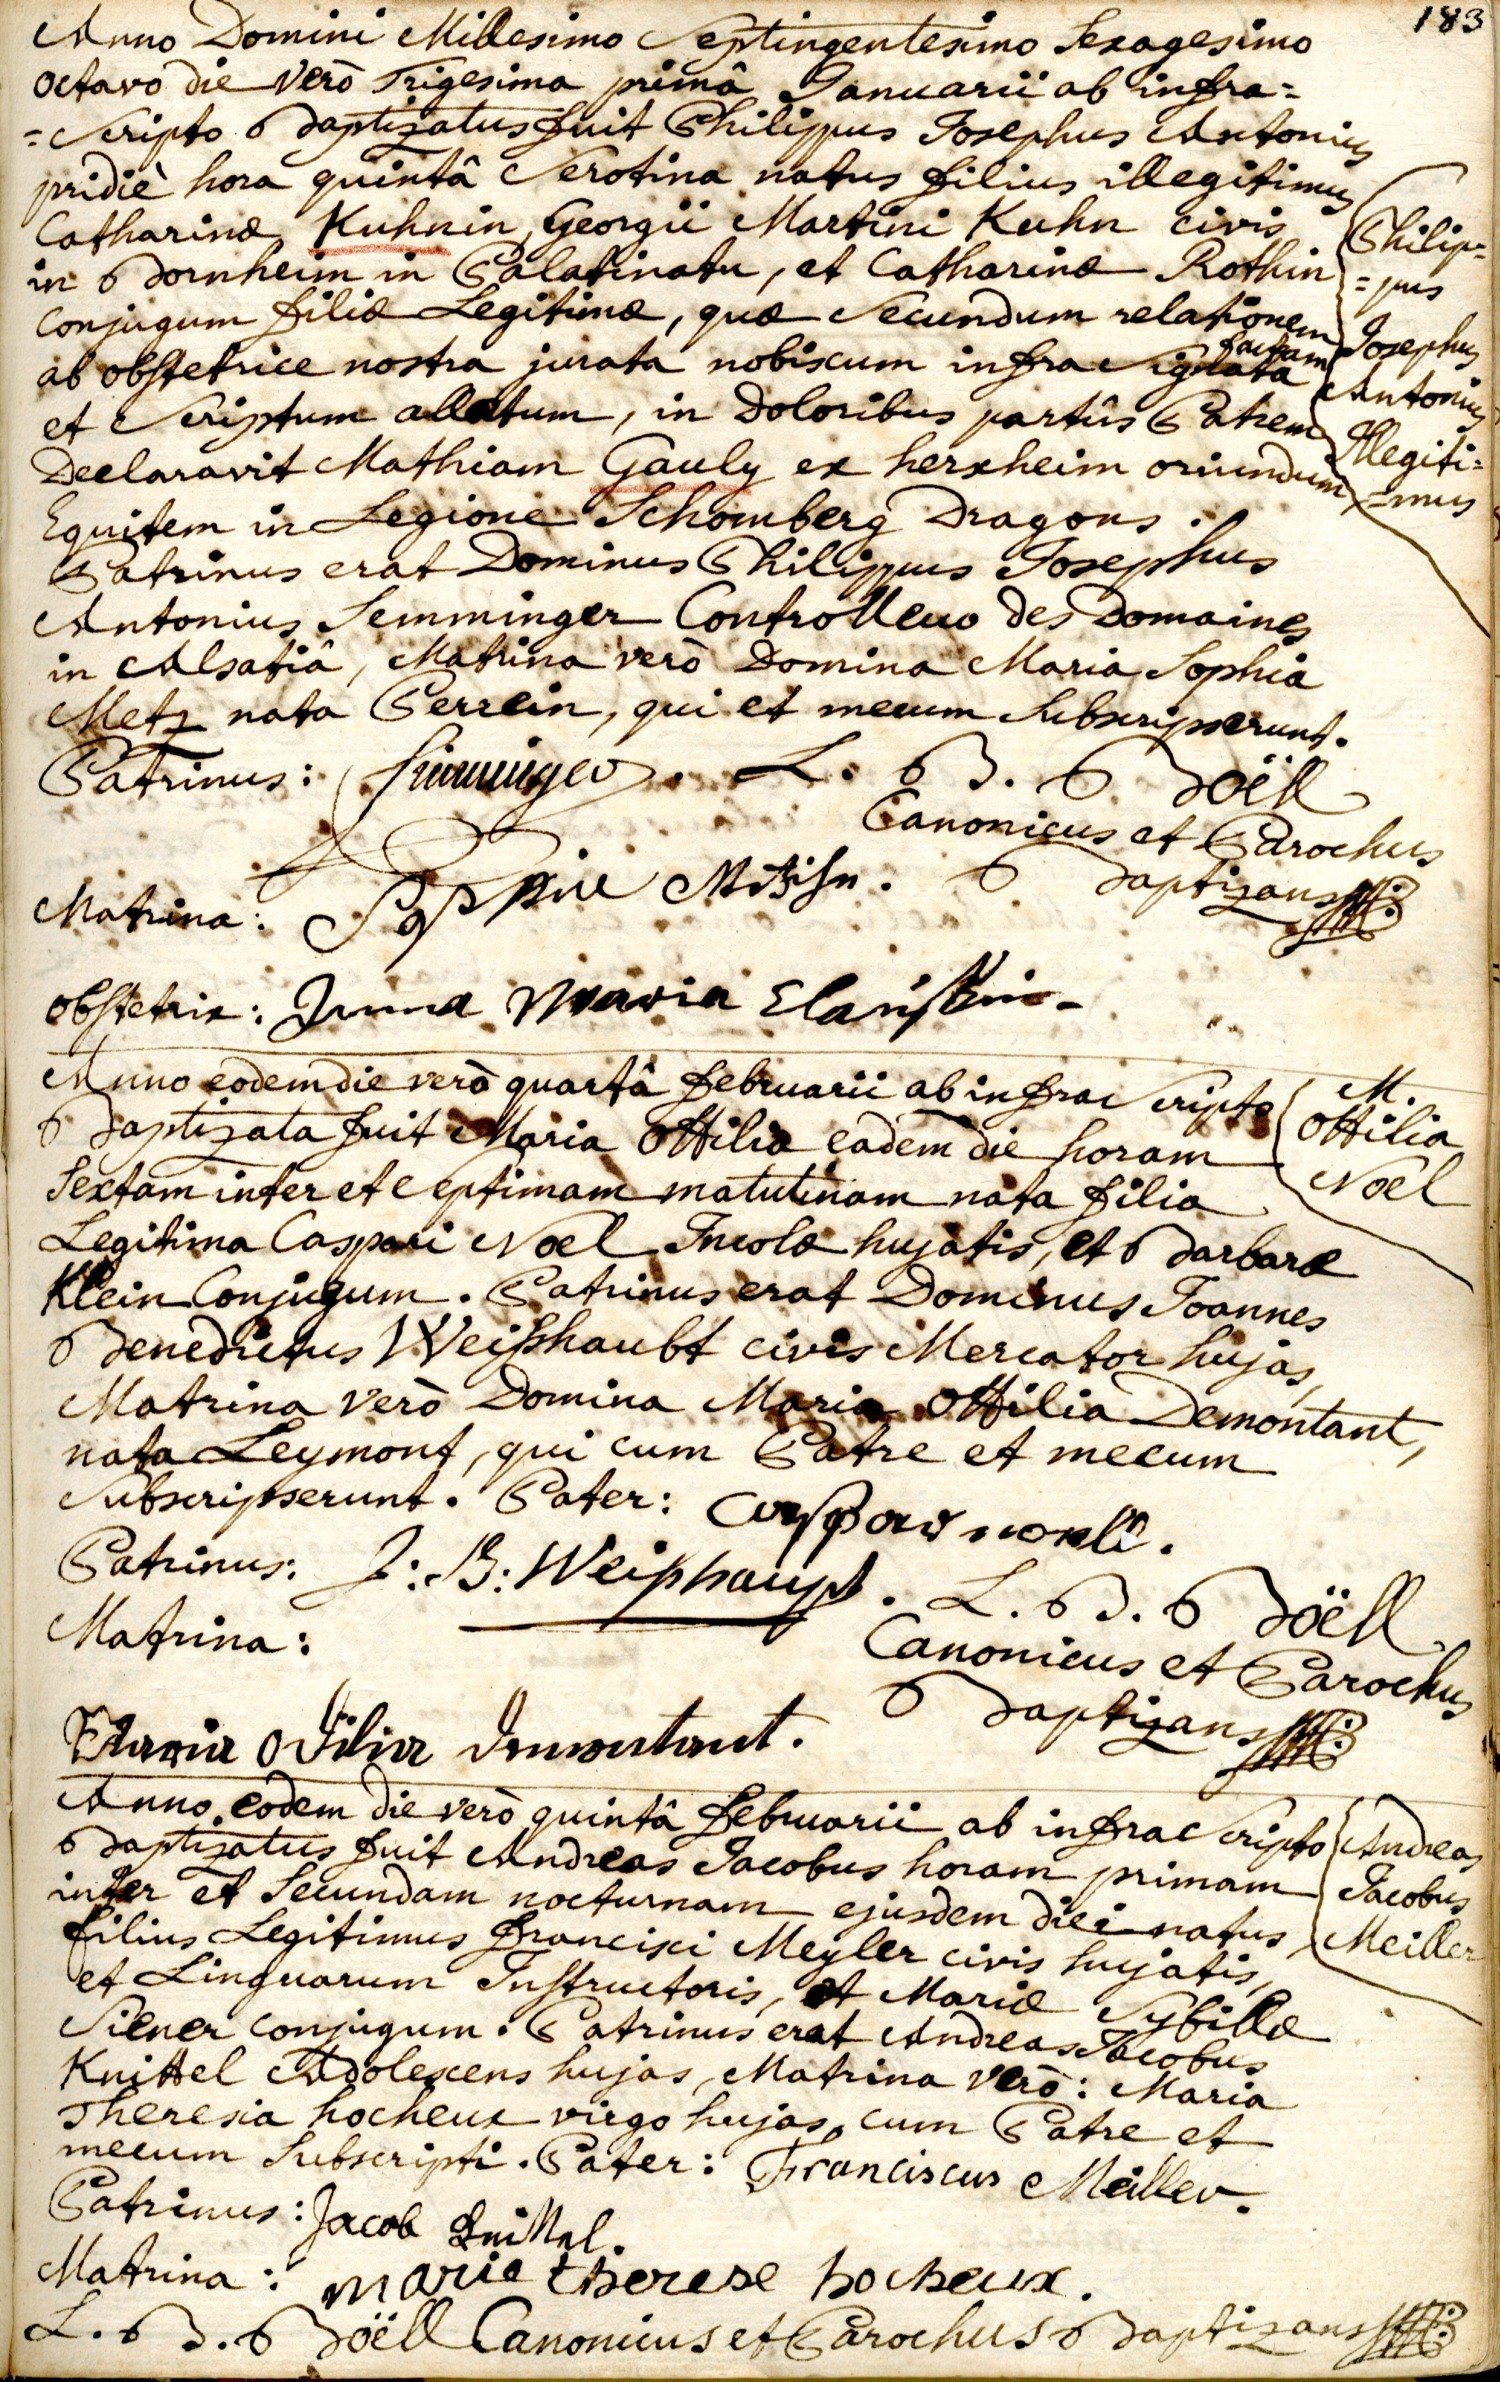 183
Anno Domini Millesimo Septingentesimo Sexagesimo
octavo die verò Trigesima primâ Januarii ab infra=
=Scripto Baptizatus fuit Philippus Josephus Antonius
pridiè hora quintâ Serotina natus filius illegitimus
Catharinæ Kuhnin, Georgii Martini Kuhn civis
in Bornheim in Palatinatu, et Catharinæ Rothin
Conjugum filiæ Legitimæ, quæ Secundum relationem
factam
ab obstetrice nostra jurata nobiscum infra Signata
et Scriptum allatum, in Doloribus partûs Patrem
Declaravit Mathiam Gauly ex herxheim oriundum
Equitem in Legione Schomberg Dragons.
Patrinus erat Dominus Philippus Josephus
Antonius Semminger Controlleur des Domaines
in Alsatiâ, Matrina verò Domina Maria Sophia
Metz nata Perrein, qui et mecum Subscripserunt.
Philip=
=pus
Josephus
Antonius
Illegiti=
=mus
Patrinus: Simminger. L. B. Boëll
Canonicus et Parochus
Baptizans
Matrina: Sophie
obstetrix: Anna Maria
Anno eodem die verò quartâ februarii ab infra Scripto
Baptizata fuit Maria Ottilia eâdem die horam
Sextam inter et Septimam matutinam nata filia
Legitima Caspari Noel Incolæ hujatis, et Barbaræ
Klein Conjugum. Patrinus erat Dominus Joannes
Benedictus Weißhaubt civis Mercator hujas,
Matrina verò Domina Maria Ottilia Demontant,
nata Leymont, qui cum Patre et mecum
Subscripserunt. Pater: Casspar noell.
M.
Ottilia
Noel
Patrinus: J: B: Weishaupt. L. B. Boëll
Matrina: Canonicus et Parochus
Baptizans
Maria Odilia Demontant.
Anno eodem die verò quintâ februarii ab infra Scripto
Baptizatus fuit Andreas Jacobus horam primam
inter et Secundam nocturnam ejusdem diei natus
filius Legitimus Francisci Meyler civis hujatis,
et Linguarum Instructoris, et Mariæ Sybillæ
Siener conjugum. Patrinus erat Andreas Jacobus
Knittel Adolescens hujas, Matrina verò: Maria
Theresia hocheux virgo hujas, cum Patre et
mecum Subscripti. Pater: Franciscus Meiller.
Andreas
Jacobus
Meiller
Patrinus: Jacob Knittel.
Matrina: marie therese hocheux.
L. B. Boëll Canonicus et Parochus Baptizans